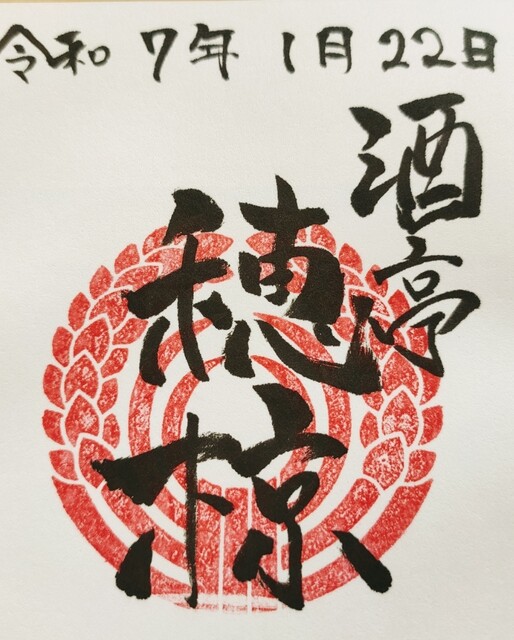 令和7年1月22日
酒亭
穂椋